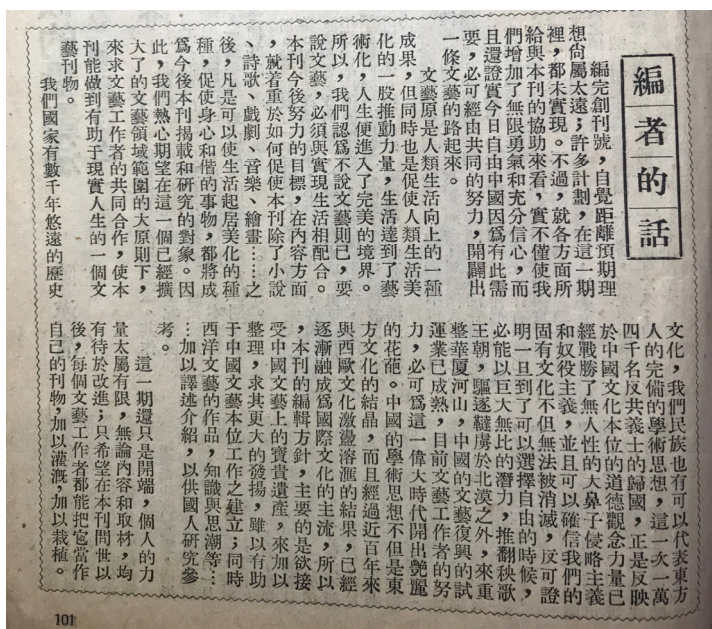 編者的話
編完創刊號，自覺距離預期理
想尙屬太遠；許多計劃，在這一期
裡，都未實現。不過，就各方面所
給與本刊的協助來看，實不僅使我
們增加了無限勇氣和充分信心，而
且還證實今日自由中國因爲有此需
要，必可經由共同的努力，開闢出
一條文藝的路起來。
文藝原是人類生活向上的一種
成果，但同時也是促使人類生活美
化的一股推動力量，生活達到了藝
術化，人生便進入了完美的境界。
所以，我們認爲不說文藝則已，要
說文藝，必須與實現生活相配合。
本刊今後努力的目標，在內容方面
，就着重於如何促使本刊除了小說
、詩歌、戲劇、音樂、繪畫……之
後，凡是可以使生活起居美化的種
種，促使身心和偕的事物，都將成
爲今後本刊揭載和硏究的對象。因
此，我們熱心期望在這一個已經擴
大了的文藝領域範圍的大原則下，
來求文藝工作者的共同合作，使本
刊能做到有助于現實人生的一個文
藝刊物。
我們國家有數千年悠遠的歷史
文化，我們民族也有可以代表東方
人的完備的學術思想，這一次一萬
四千名反共義士的歸國，正是反映
於中國文化本位的道德觀念力量已
經戰勝了無人性的大鼻子侵略主義
和奴役主義，並且可以確信我們的
固有文化不但無法被消滅，反可證
明一旦到了可以選擇自由的時候，
必能以巨大無比的潛力，推翻秧歌
王朝，驅逐韃虜於北漠之外，來重
整華厦河山，中國的文藝復興的試
運業已成熟，目前文藝工作者的努
力，必可爲這一偉大時代開出艷麗
的花葩。中國的學術思想不但是東
方文化的結晶，而且經過近百年來
與西歐文化激盪溶滙的結果，已經
逐漸融成爲國際文化的主流，所以
，本刊的編輯方針，主要的是欲接
受中國文藝上的寶貴遺產，來加以
整理，求其更大的發揚，雖以有助
于中國文藝本位工作之建立；同時
西洋文藝的作品，知識與思潮等…
…加以譯述介紹，以供國人硏究參
考。
這一期還只是開端，個人的力
量太屬有限，無論內容和取材，均
有待於改進；只希望在本刊問世以
後，每個文藝工作者都能把它當作
自己的刊物，加以灌漑，加以栽植。
101